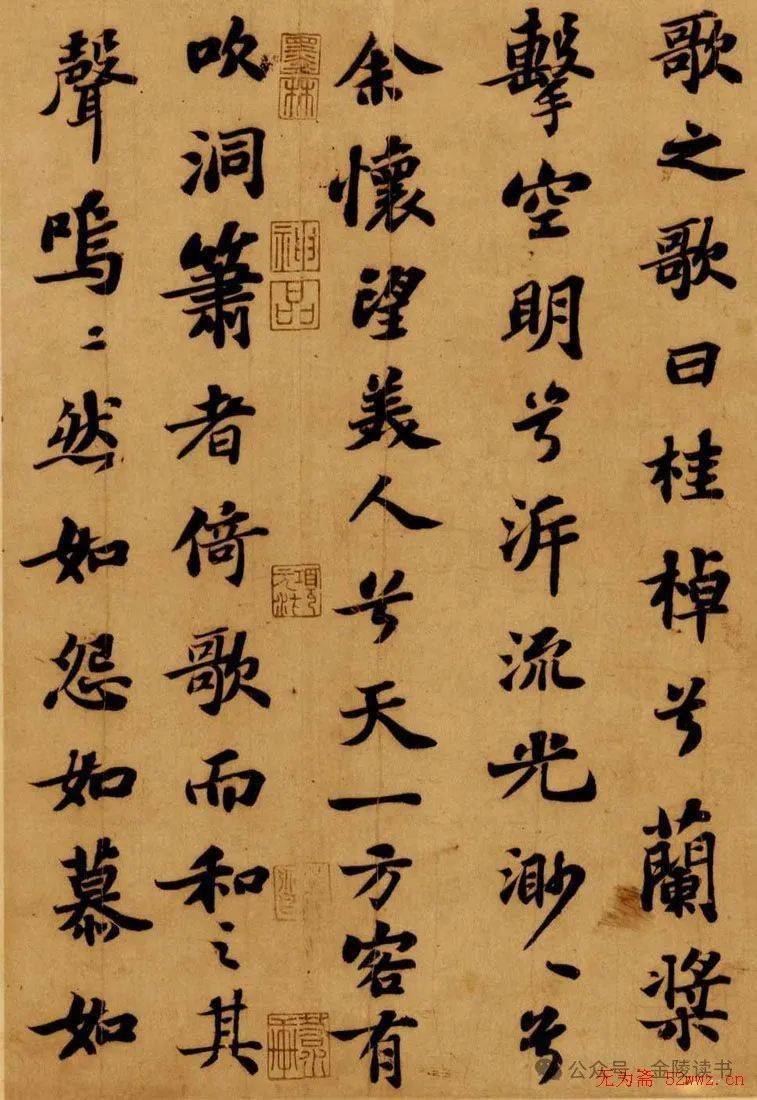 歌之歌曰桂棹兮蘭槳
擊空明兮泝流光渺〻兮
余懷望美人兮天一方客有
吹洞簫者倚歌而和之其
聲嗚〻然如怨如慕如
神品
公众号 · 金陵读书
无为斋 52wwz.cn